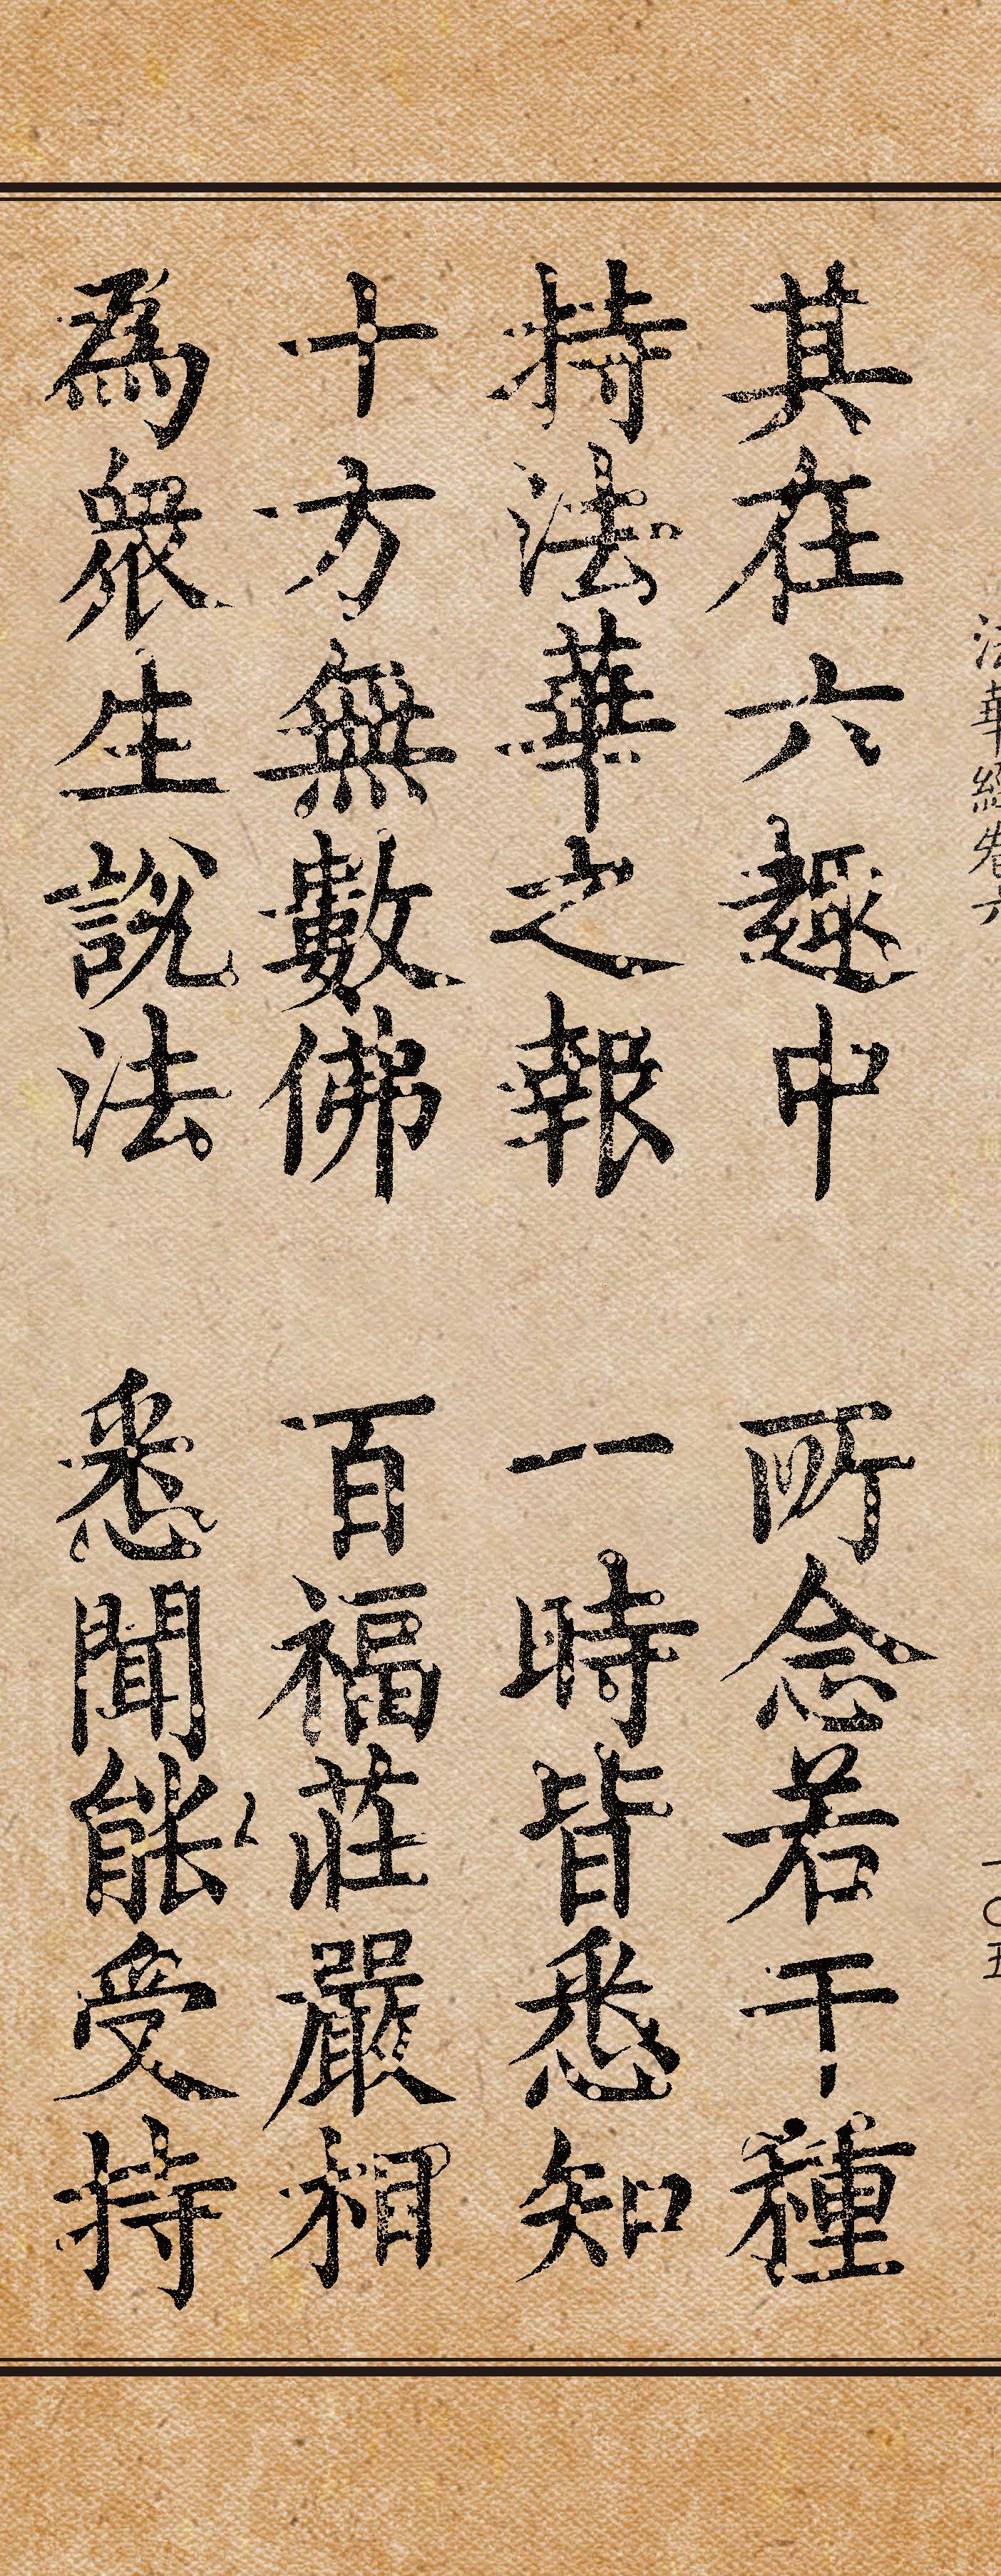 法華經卷六 一〇五
其在六趣中 所念若干種
持法華之報 一時皆悉知
十方無數佛 百福莊嚴相
為衆生說法 悉聞能受持